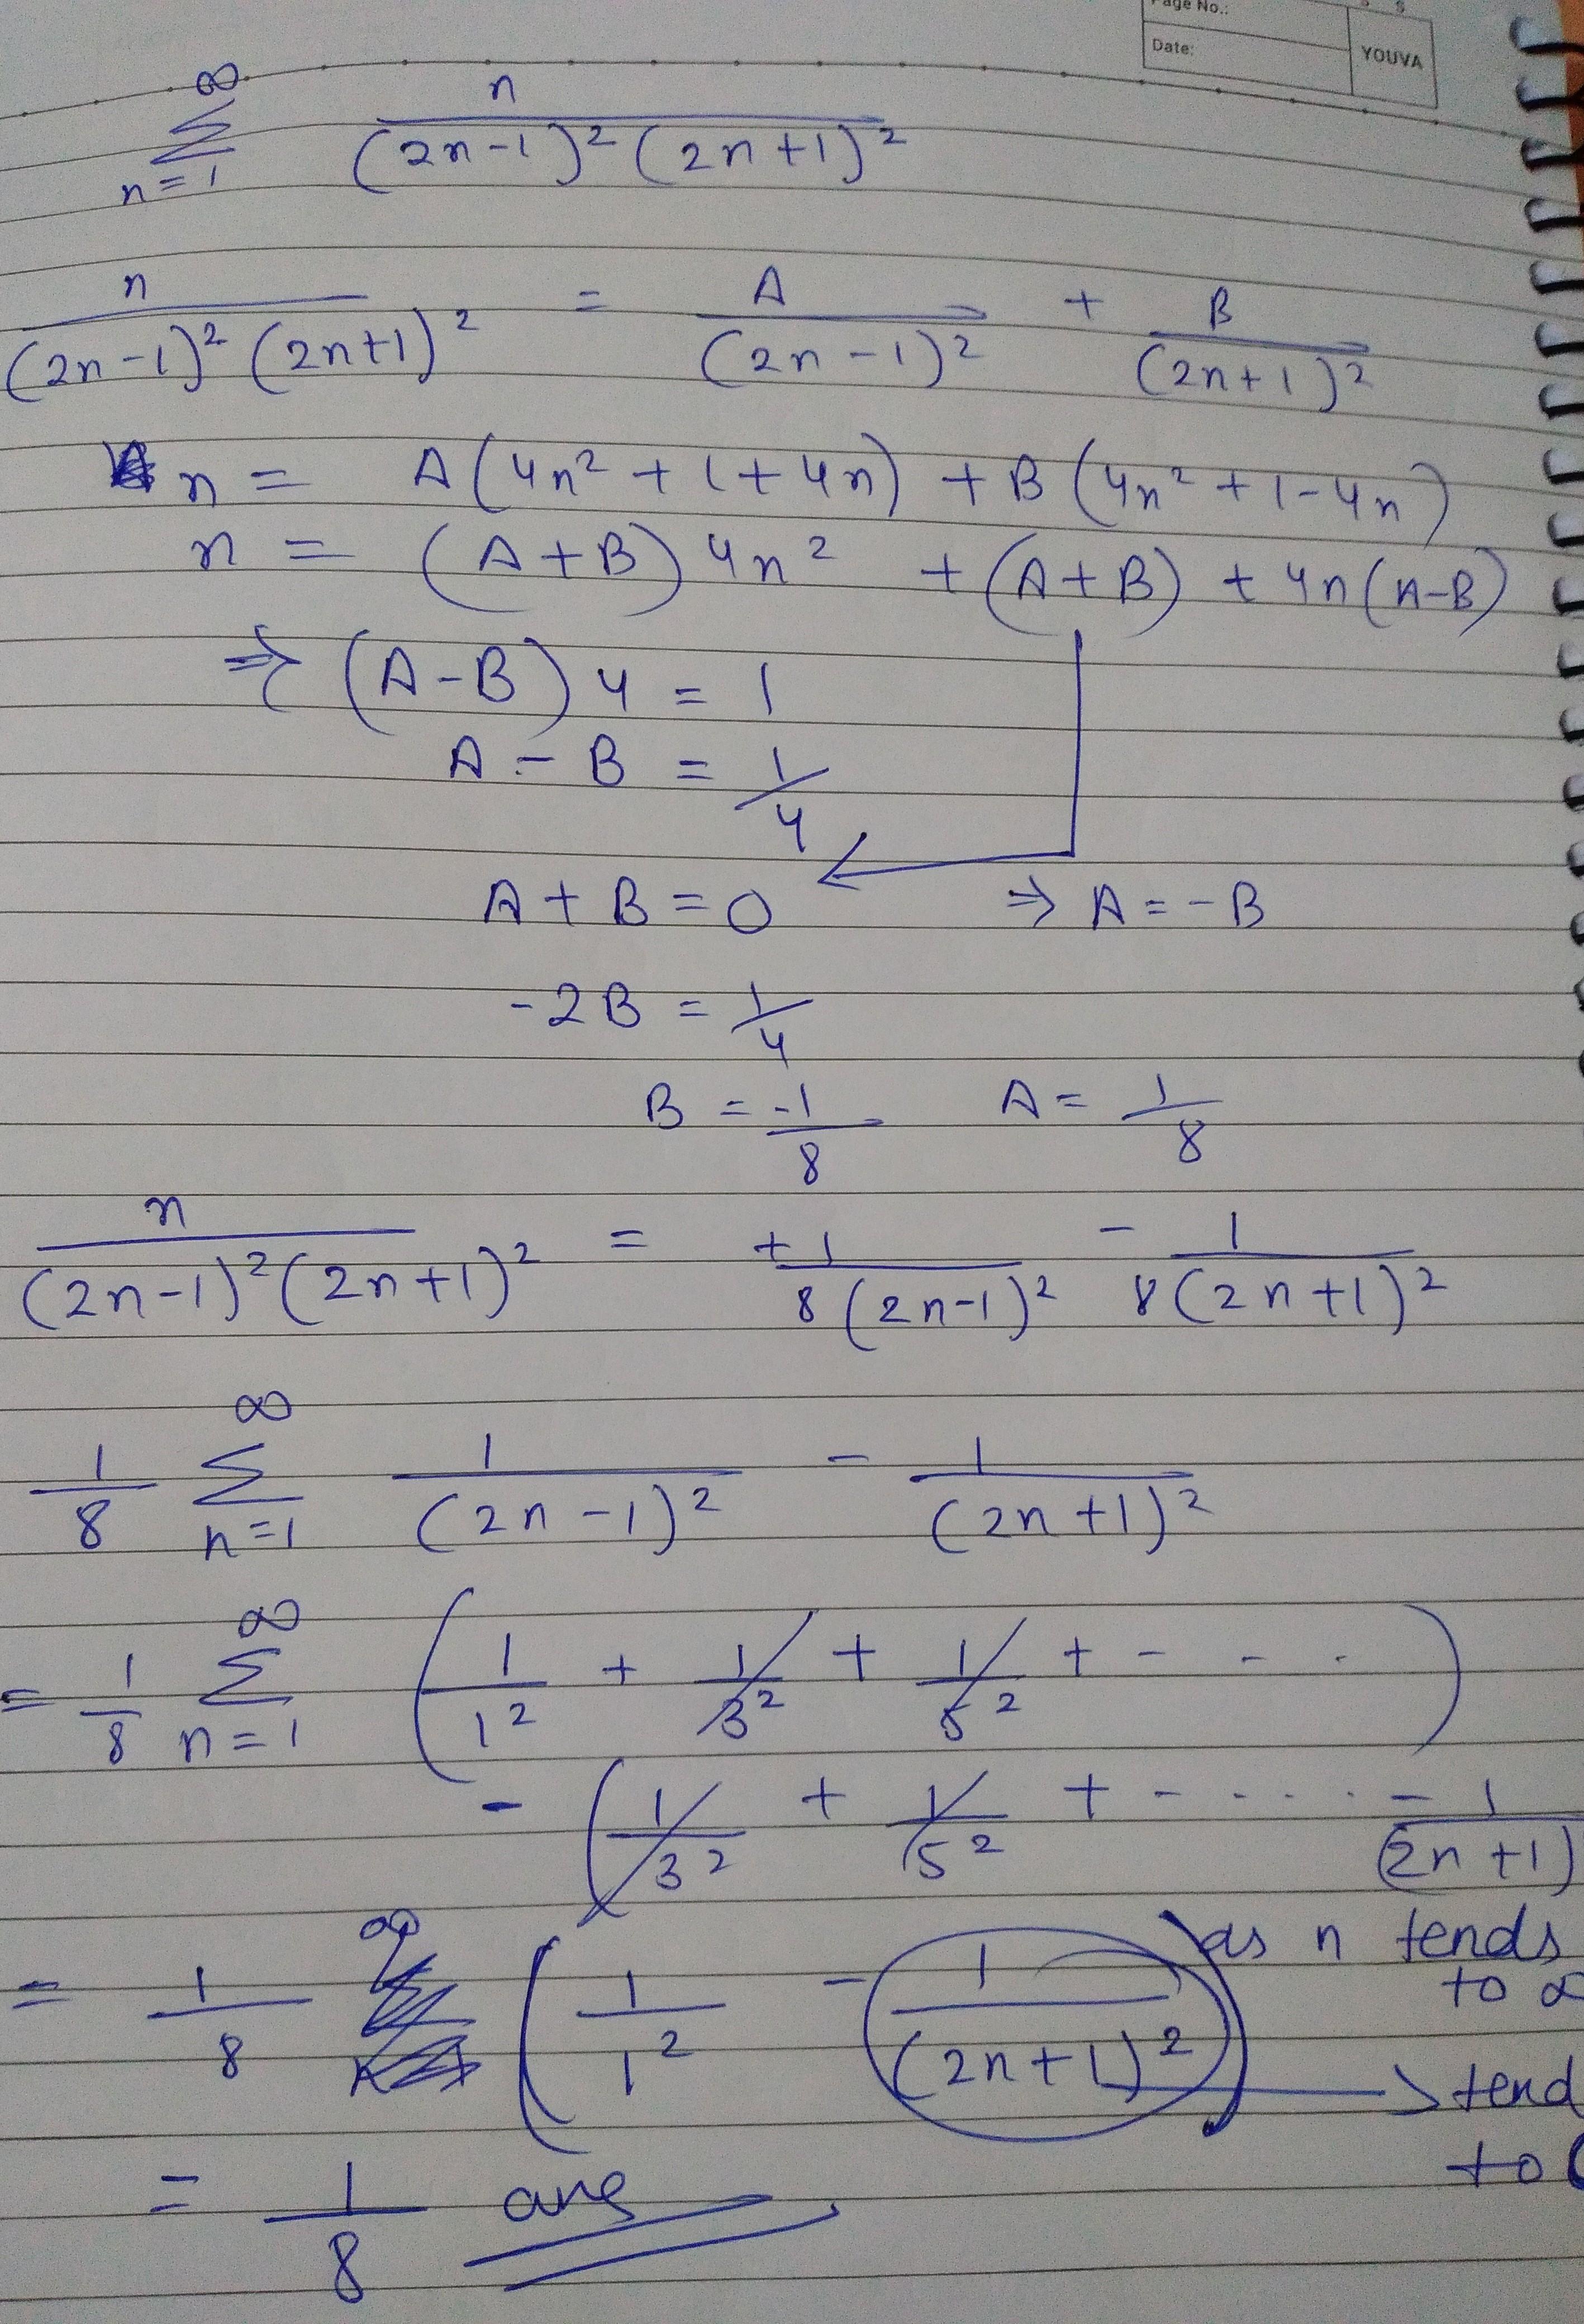 Page No.:
Date:
YOUVA
∞
Σ n / (2n-1)² (2n+1)²
n=1
n / (2n-1)² (2n+1)² = A / (2n-1)² + B / (2n+1)²
n = A(4n²+1+4n) + B(4n²+1-4n)
n = (A+B)4n² + (A+B) + 4n(A-B)
⇒ (A-B)4 = 1
A - B = 1/4
A + B = 0 ⇒ A = -B
-2B = 1/4
B = -1/8 A = 1/8
n / (2n-1)²(2n+1)² = +1 / 8(2n-1)² - 1 / 8(2n+1)²
∞
1/8 Σ 1 / (2n-1)² - 1 / (2n+1)²
n=1
∞
= 1/8 Σ (1/1² + 1/3² + 1/5² + - - ·)
n=1
- (1/3² + 1/5² + - · · · · - 1 / (2n+1)
as n tends
to
∞
= 1/8 (1/1² - 1 / (2n+1)²) → tend
to
= 1/8 ans